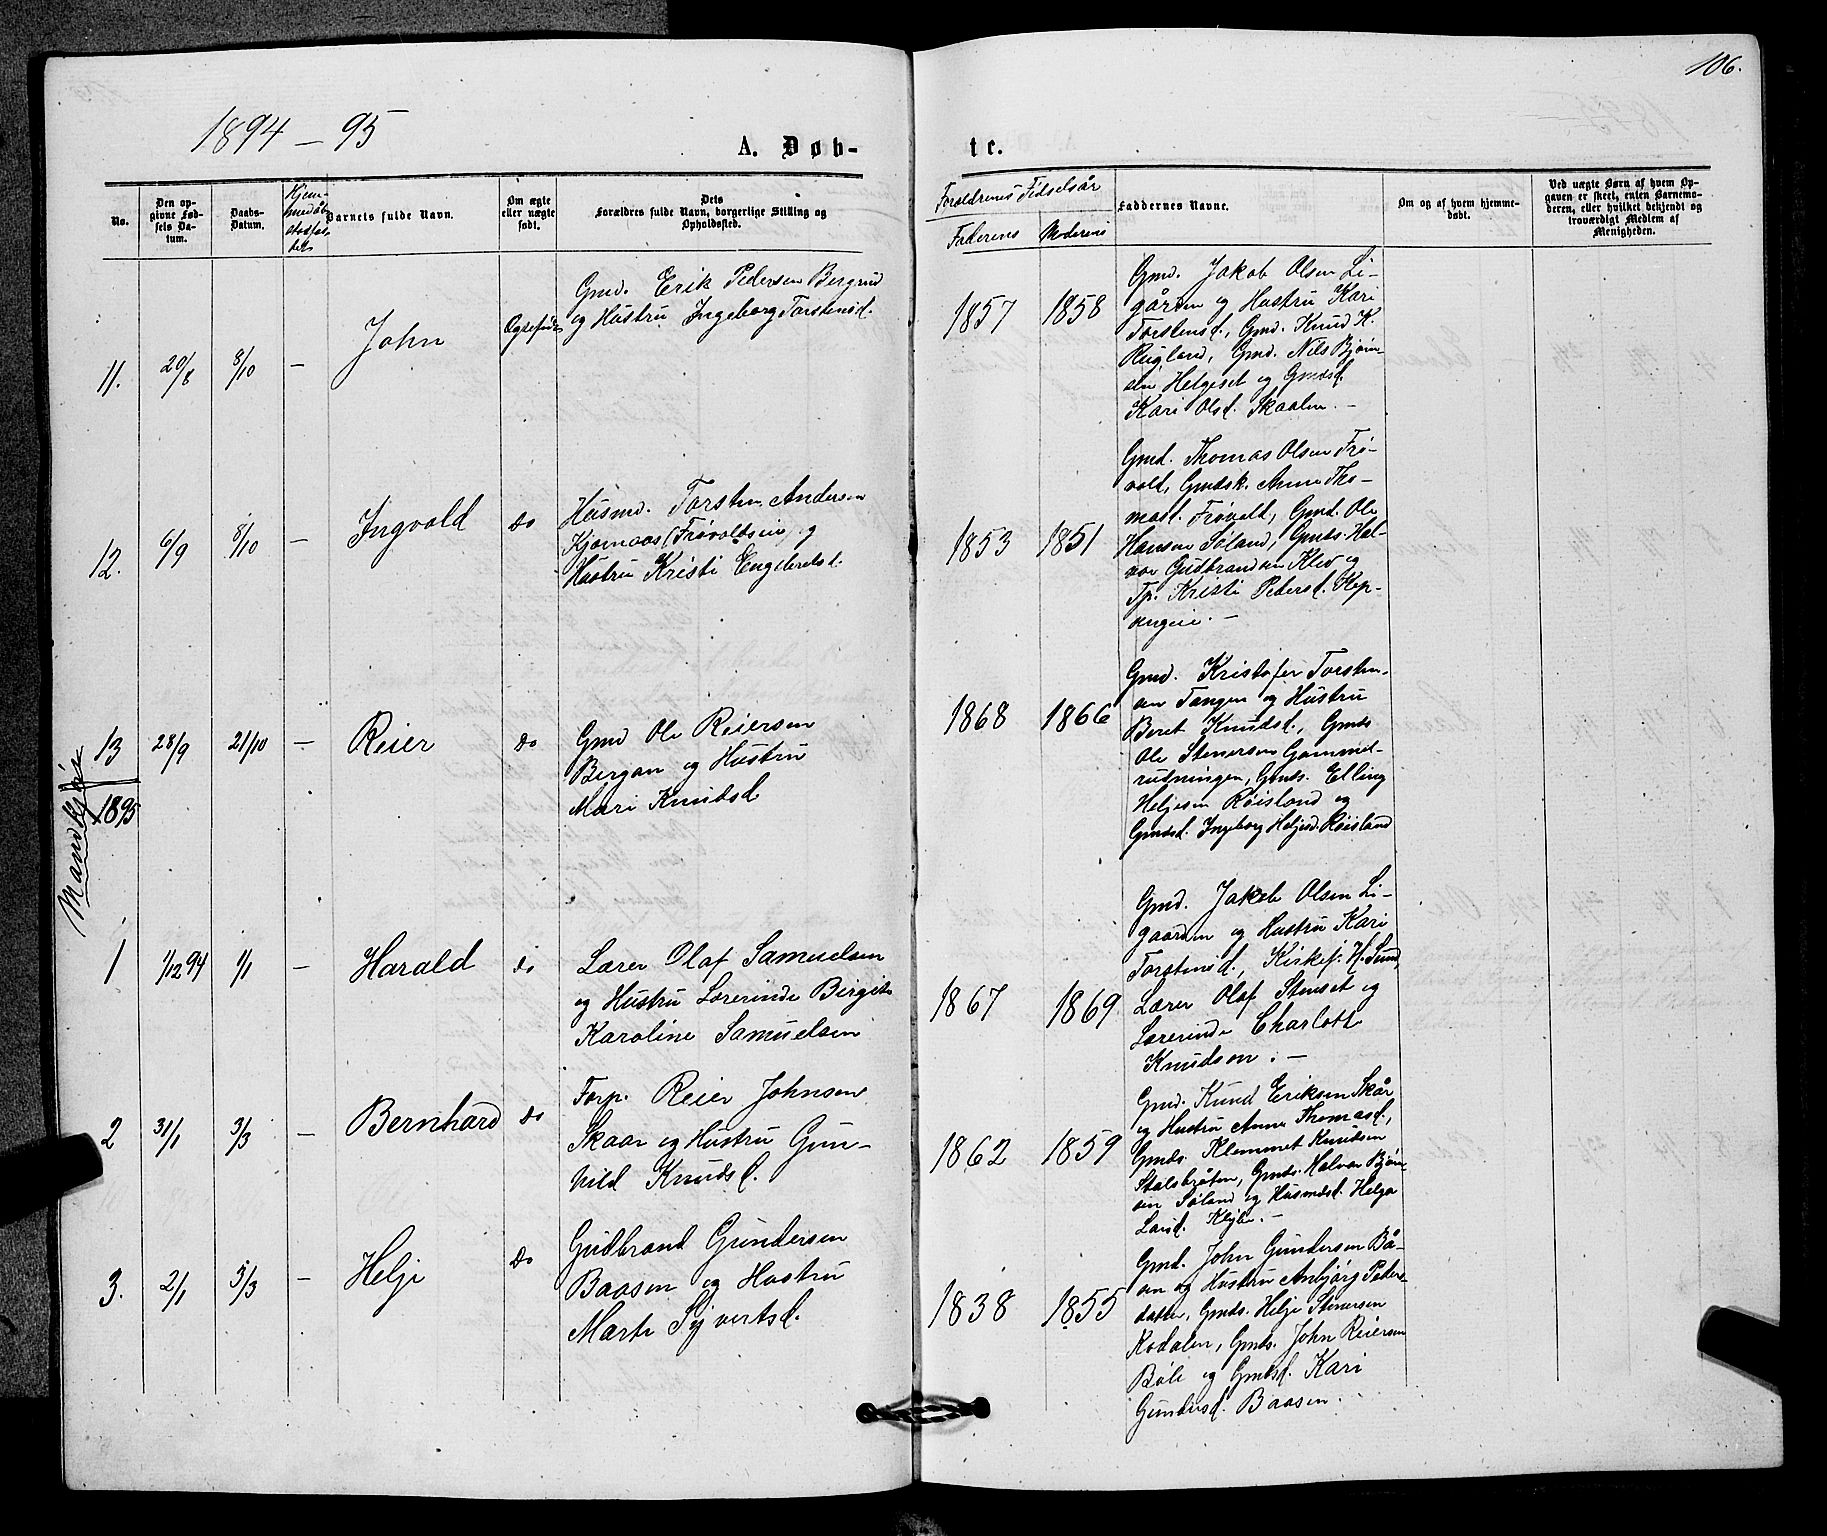 106.
1894 – 95
A. Døb-
te.
No.
Den op-
givne Fød-
sels Da-
tum.
Daabs-
Datum.
Barnets fulde Navn.
Om ægte
eller uægte
født.
Dets
Forældres fulde Navn, borgerlige Stilling og
Opholdssted.
Forældrenes Fødselsår
Faderens
Moderens
Faddernes Navne.
Om og af hvem hjemme-
døbt.
Ved uægte Børn af hvem Op-
gaven er skeet, enten Barnemo-
deren, eller hvilket bekjendt og
troværdigt Medlem af
Menigheden.
11.
20/8
8/10
–
John
Ægtefødt
Gmd. Erik Pedersen Bergrud
og Hustru Ingeborg Torstensd.
1857
1858
Gmd. Jakob Olsen Li-
gården og Hustru Kari
Torstensd., Gmd. Knud K.
Rugland, Gmd. Nils Bjørn-
sen Helgeset og Gmdsd.
Kari Olsd. Skaalen. –
12.
6/9
8/10
–
Ingvald
do
Husmd. Torsten Andersen
Kjømaas (Frøvoldseie) og
Hustru Kristi Engebretsd.
1853
1851
Gmd. Thomas Olsen Frø-
vold, Gmdsk. Anne Tho-
masd. Frøvold, Gmd. Ole
Hansen Søland, Gmds. Hal-
vor Gudbrandsen Klev og
Tp. Kristi Pedersd. Hop-
angeie. –
13
28/9
21/10
–
Reier
do
Gmd Ole Reiersen
Bergan og Hustru
Mari Knudsd
1868
1866
Gmd. Kristofer Torsten-
sen Tangen og Hustru
Beret Knudsd., Gmds
Ole Stenersen Gammel-
rudningen, Gmds. Elling
Heljesen Røisland og
Gmdsd. Ingeborg Heljesd. Røisland
1895
Mandkjøn
1
1/12 94
1/1
–
Harald
do
Lærer Olaf Samuelsen
og Hustru Lærerinde Birgit
Karoline Samuelsen
1867
1869
Gmd. Jakob Olsen Li-
gaarden og Hustru Kari
Torstensd., Kirkes. H. Sund,
Lærer Olaf Stenset og
Lærerinde Charlotte
Knudson. –
2
31/1
3/3
–
Bernhard
do
Forp. Reier Johnsen
Skaar og Hustru Gun-
hild Knudsd.
1862
1859
Gmd. Knud Eriksen Skår
og Hustru Anne Thomasd.,
Gmds. Klemmet Knudsen
Stalsbråten, Gmds. Halvor Bjørn-
sen Søland og Husmdsd. Helga
Larsd.
3.
2/1
5/3
–
Helje
do
Gudbrand Gundersen
Baasen og Hustru
Marte Syvertsd.
1838
1855
Gmd. John Gundersen Bå-
sen og Hustru Anbjørg Peders-
datter, Gmds. Helje Stenersen
Rodalen, Gmds. John Reiersen
Bøle og Gmdsd. Kari
Gundersd. Baasen.